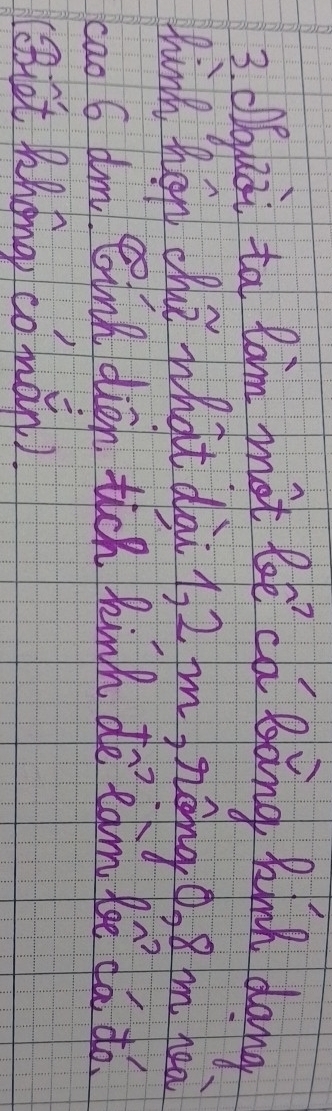 3. Người ta làm một bể cá bằng kính dạng
hình hộp chữ nhật dài 1,2 m, rộng 0,8 m và
cao 6 dm. Tính diện tích kính để làm bể cá đó.
(Biết không có nắp).